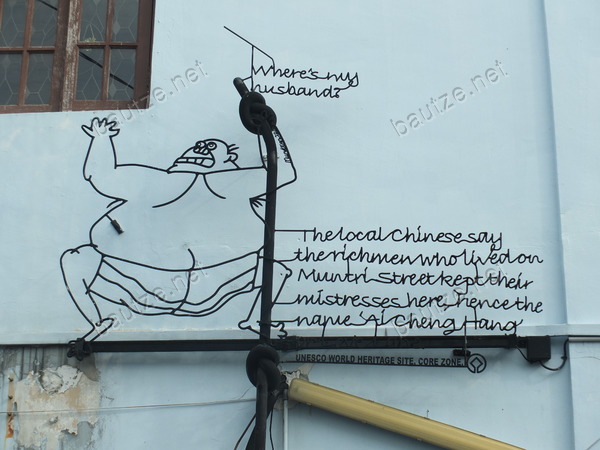 bautze.net
bautze.net
Where's my
husband?
The local Chinese say
the richmen who lived on
Muntri Street kept their
mistresses here, hence the
name 'Ai Cheng Hang'
bautze.net
bautze.net
bautze.net
UNESCO WORLD HERITAGE SITE, CORE ZONE.